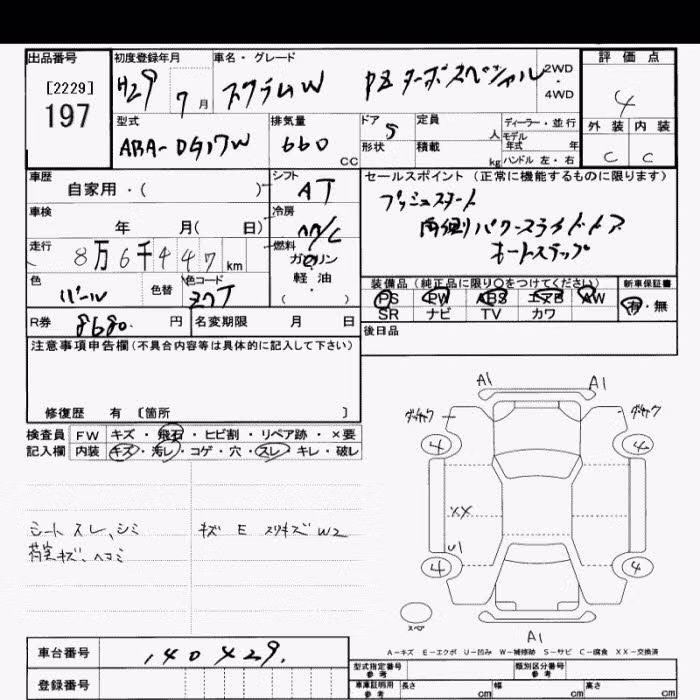 出品番号 初度登録年月 車名・グレード 評価点
[2229] H29 7月 スクラムW PZ ターボスペシャル 2WD 4WD 4
197
型式 排気量 ドア 定員 ディーラー・並行 外装 内装
ABA-DG17W 660 CC 5 人 モデル年式 年 C C
形状 積載 kg ハンドル 左・右
車歴 シフト セールスポイント (正常に機能するものに限ります)
自家用・( ) AT プッシュスタート
車検 冷房 両側パワースライドドア
年 月( 日) AA/C オートステップ
走行 燃料
8万6千447km ガソリン
色 色替 色コード 軽油 装備品 (純正品に限り○をつけてください) 新車保証書
パール ( ) PS PW ABS エアB AW 有・無
SR ナビ TV カワ
R券 8680. 円 名変期限 月 日 後日品
注意事項申告欄(不具合内容等は具体的に記入して下さい)
修復歴 有 〔箇所 〕
検査員 FW キズ・飛石・ヒビ割・リペア跡・×要
記入欄 内装 キズ・汚レ・コゲ・穴・スレ・キレ・破レ
シート スレ、シミ キズ E スリキズ W2
荷室キズ、ヘコミ
A1 A1
4 4
XX
U1
4 4
スペア
A1
A-キズ E-エクボ U-凹み W-補修跡 S-サビ C-腐食 XX-交換済
車台番号 140429.
型式指定番号 参考 類別区分番号 参考
登録番号 車庫証明用 参考 長さ cm 幅 cm 高さ cm